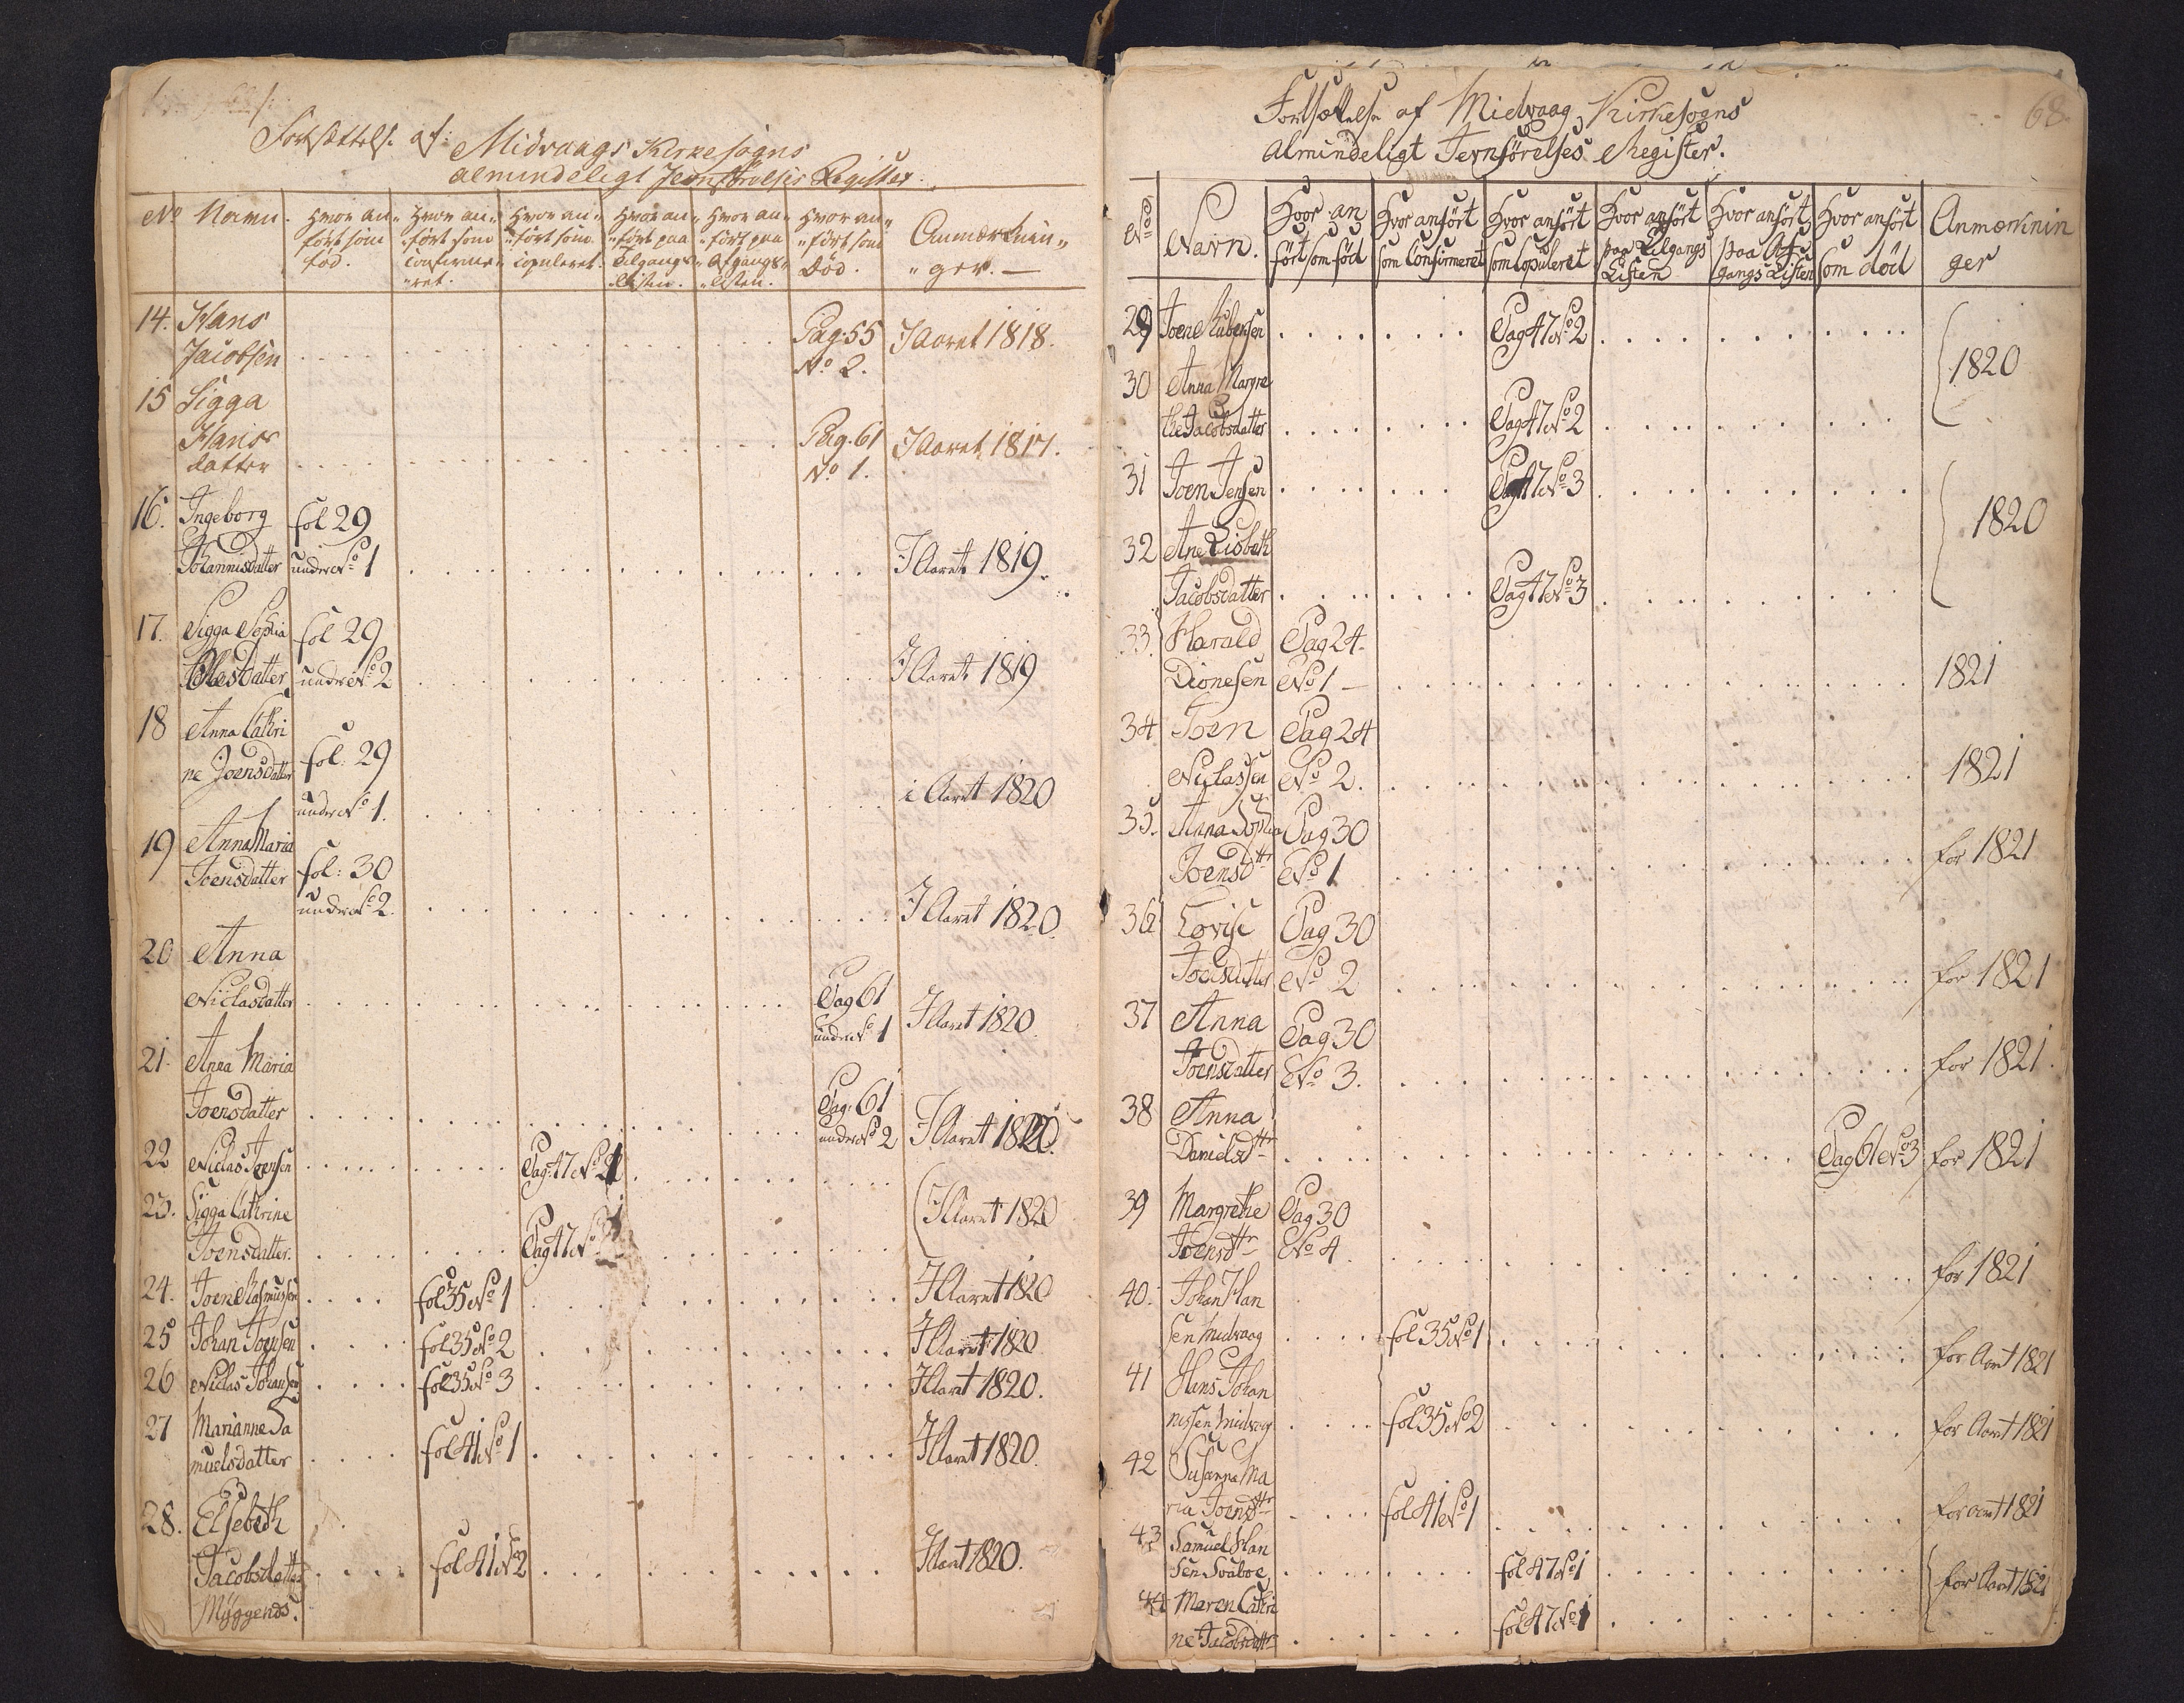 Fortsættelse af: Midvaags Kirkesogns
almindeligt Jevnførelses Register.
No Navn. Hvor an- ført som fød. Hvor an- ført som confirme- ret. Hvor an- ført som copuleret. Hvor an- ført paa Tilgangs- Listen. Hvor an- ført paa Afgangs- Listen. Hvor an- ført som Død. Anmærknin- ger.
14. Hans Pag 55 I Aaret 1818.
Jacobsen No 2.
15 Sigga
Hans Pag. 61 I Aaret 1817.
datter No 1.
16. Ingeborg fol 29
Johannisdatter under No 1 I Aaret 1819.
17. Sigga Sophia fol 29
Olesdatter under No 2 I Aaret 1819
18 Anna Cathri
ne Joensdatter fol: 29
under No 1. i Aaret 1820
19 Anna Maria
Joensdatter fol: 30
under No 2. I Aaret 1820
20 Anna
Niclasdatter Pag 61
under No 1 I Aaret 1820.
21. Anna Maria
Joensdatter Pag: 61
under No 2 I Aaret 1820.
22 Niclas Joensen Pag: 47 No 1
23. Sigga Cathrine I Aaret 1820
Joensdatter. Pag 47 No 1
24. Joen Rasmussen fol 35 No 1 I Aaret 1820
25 Johan Joensen fol 35 No 2 I Aaret 1820
26 Niclas Johansen fol 35 No 3 I Aaret 1820.
27 Marianne Sa
muelsdatter fol 41 No 1 I Aaret 1820.
28. Elsebeth
Jacobsdatter fol 41 No 2 I Aaret 1820.
Myggenæs.
68
Fortsættelse af Midvaag Kirkesogns
almindeligt Jevnførelses Register.
No Navn. Hvor an ført som fød Hvor anført som Confirmeret Hvor anført som Copuleret Hvor anført paa Tilgangs Listen Hvor anført paa Af gangs Listen Hvor anført som död Anmærknin ger
29 Joen Pag 47 No 2
1820
30 Anna Margre
the Jacobsdatter Pag 47 No 2
31 Joen Jensen Pag 47 No 3
1820
32 Ane Lisbeth
Jacobsdatter Pag 47 No 3
33. Harald Pag 24
Dionesen No 1 1821
34 Joen Pag 24
Niclassen No 2. 1821
35. Anna Sophia Pag 30
Joensdtr No 1 for 1821
36 Lovise Pag 30
Joensdatter No 2 for 1821
37 Anna Pag 30
Joensdatter No 3. for 1821.
38 Anna
Danielsdtr Pag 61 No 3 for 1821
39 Margrethe Pag 30
Joensdtr No 4. for 1821
40. Johan Han
sen Midvaag fol 35 No 1 for Aaret 1821
41 Hans Johan
nissen Midvaag fol 35 No 2 for Aaret 1821
42 Susanna Ma
ria Joensdtr fol 41 No 1 for aaret 1821
43 Samuel Han
sen Svaboe fol 47 No 1 for Aaret 1821
44 Maren Cathri
ne Jacobsdtr fol 47 No 1